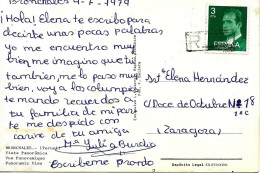 Bronchales 4-7-1979
¡Hola! Elena te escribo para
decirte unas pocas palabras
yo me encuentro muy
bien me imagino que tu
tambien, me lo paso muy
bien, voy a los columpios
te mando recuerdos a
tu familia de mi par
te me despido con
cariño de tu amiga
Mª Yuli
Escribeme pronto
BRONCHALES.- (Teruel)
Vista Panorámica
Vue Panoramique
Panoramic View
3
PTAS
ESPAÑA
CORREOS
Srt Elena Hernández
C/ Doce de Octubre Nº 18
Zaragoza
Depósito Legal